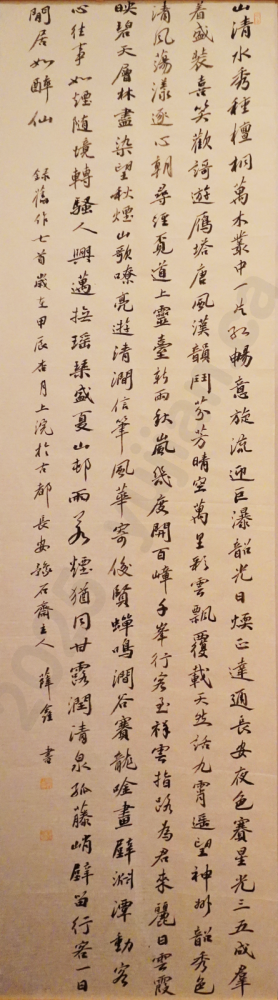 山清水秀種檀桐萬木叢中一片紅暢意旋流迎巨瀑韶光日煥正達通長安夜色賽星光三五成群
着盛裝喜笑歡謌遊雁塔唐風漢韻鬥芬芳晴空萬里彩雲飄覆載天然話九霄遥望神州韶秀色
清風蕩漾逐心朝尋徑覓道上靈臺新雨秋嵐幾度開百峰千峯行客玉祥雲指路為君來麗日雲霞
映碧天層林盡染望秋煙山歌嘹亮遊清澗信筆風華寄俊賢蟬鳴澗谷賽龍吟畫壁淵潭動客
心往事如煙隨境轉騷人興邁撫瑶琴盛夏山邨雨若煙猶同甘露潤清泉孤藤峭壁留行客一日
閒居如醉仙
錄舊作七首歲在甲辰杏月上浣於古都長安 石齋主人 薛鑫書